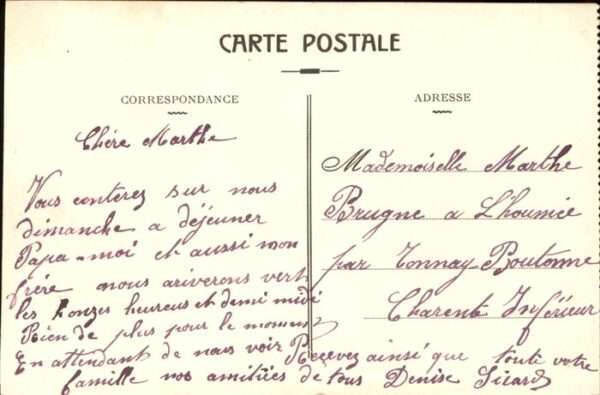 CARTE POSTALE
CORRESPONDANCE
ADRESSE
Chére Marthe
Vous conterez sur nous
dimanche a déjeuner
Papa-moi et aussi mon
frére nous ariverons vert
les honzes heures et demi midi
Rien de plus pour le moment
En attendant de nous voir Recevez ainsé que touté votre
famille nos amitiées de tous Denise Sicard
Mademoiselle Marthe
Brugne a L'houmée
par Tonnay-Boutonne
Charente Inférieur